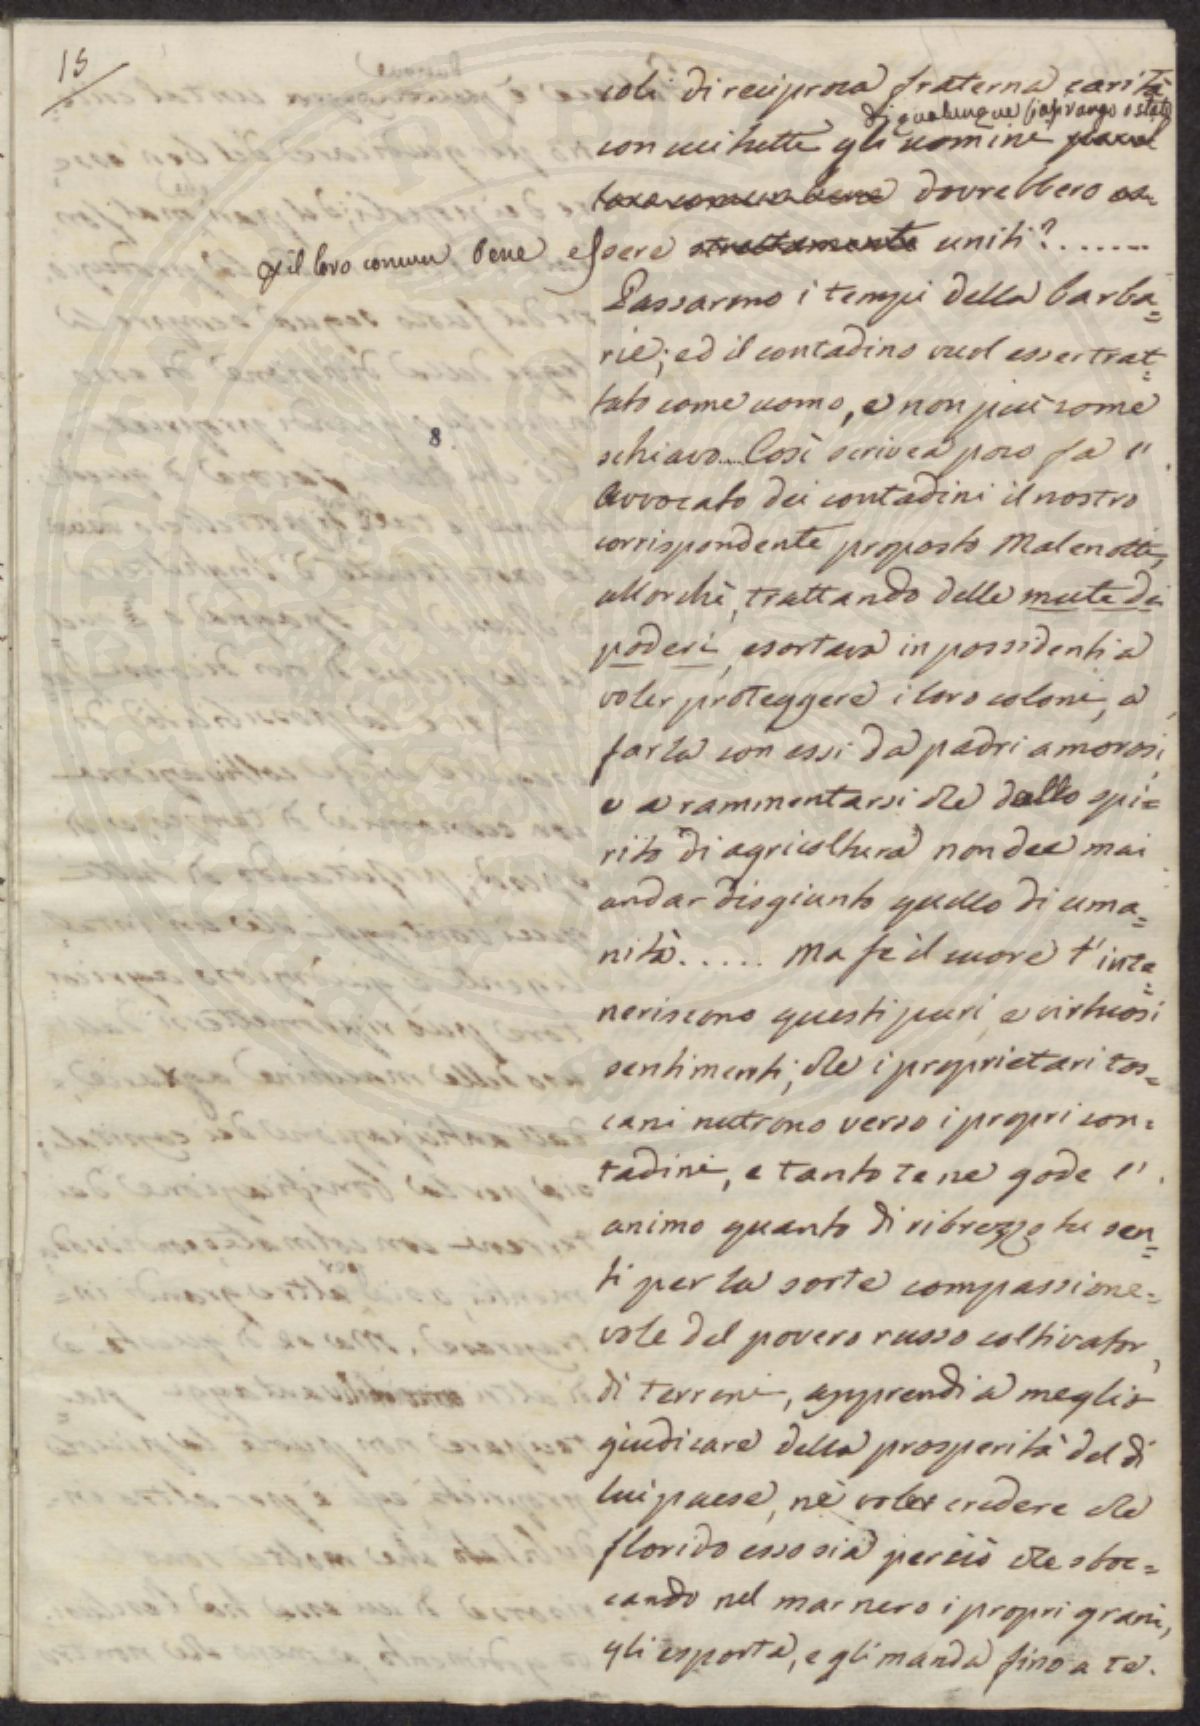 15
coli di reciproca fraterna carità
di qualunque siasi rango o stato
con cui tutti gli uomini
dovrebbero es-
x il loro comun bene essere strettamente uniti?.......
Passarono i tempi della barba=
rie; ed il contadino vuol esser trat=
tato come uomo, e non più come
schiavo.... Così scrivea poco fa l'
Avvocato dei contadini il nostro
corrispondente proposto Malenotti,
allorchè, trattando delle mute di
poderi, esortava i possidenti a
voler proteggere i loro coloni, a
farla con essi da padri amorosi,
e a rammentarsi che dallo spi=
rito di agricoltura non dee mai
andar disgiunto quello di uma=
nità..... Ma se il cuore t'inte=
neriscono questi puri e virtuosi
sentimenti, che i proprietari tos=
cani nutrono verso i propri con=
tadini, e tanto te ne gode l'
animo quanto di ribrezzo tu sen=
ti per la sorte compassione=
vole del povero russo coltivator,
di terreni, apprendi a meglio
giudicare della prosperità del di
lui paese, nè voler credere che
florido esso sia perciò che sboc=
cando nel mar nero i propri grani,
gli esporta, e gli manda fino a te.
8